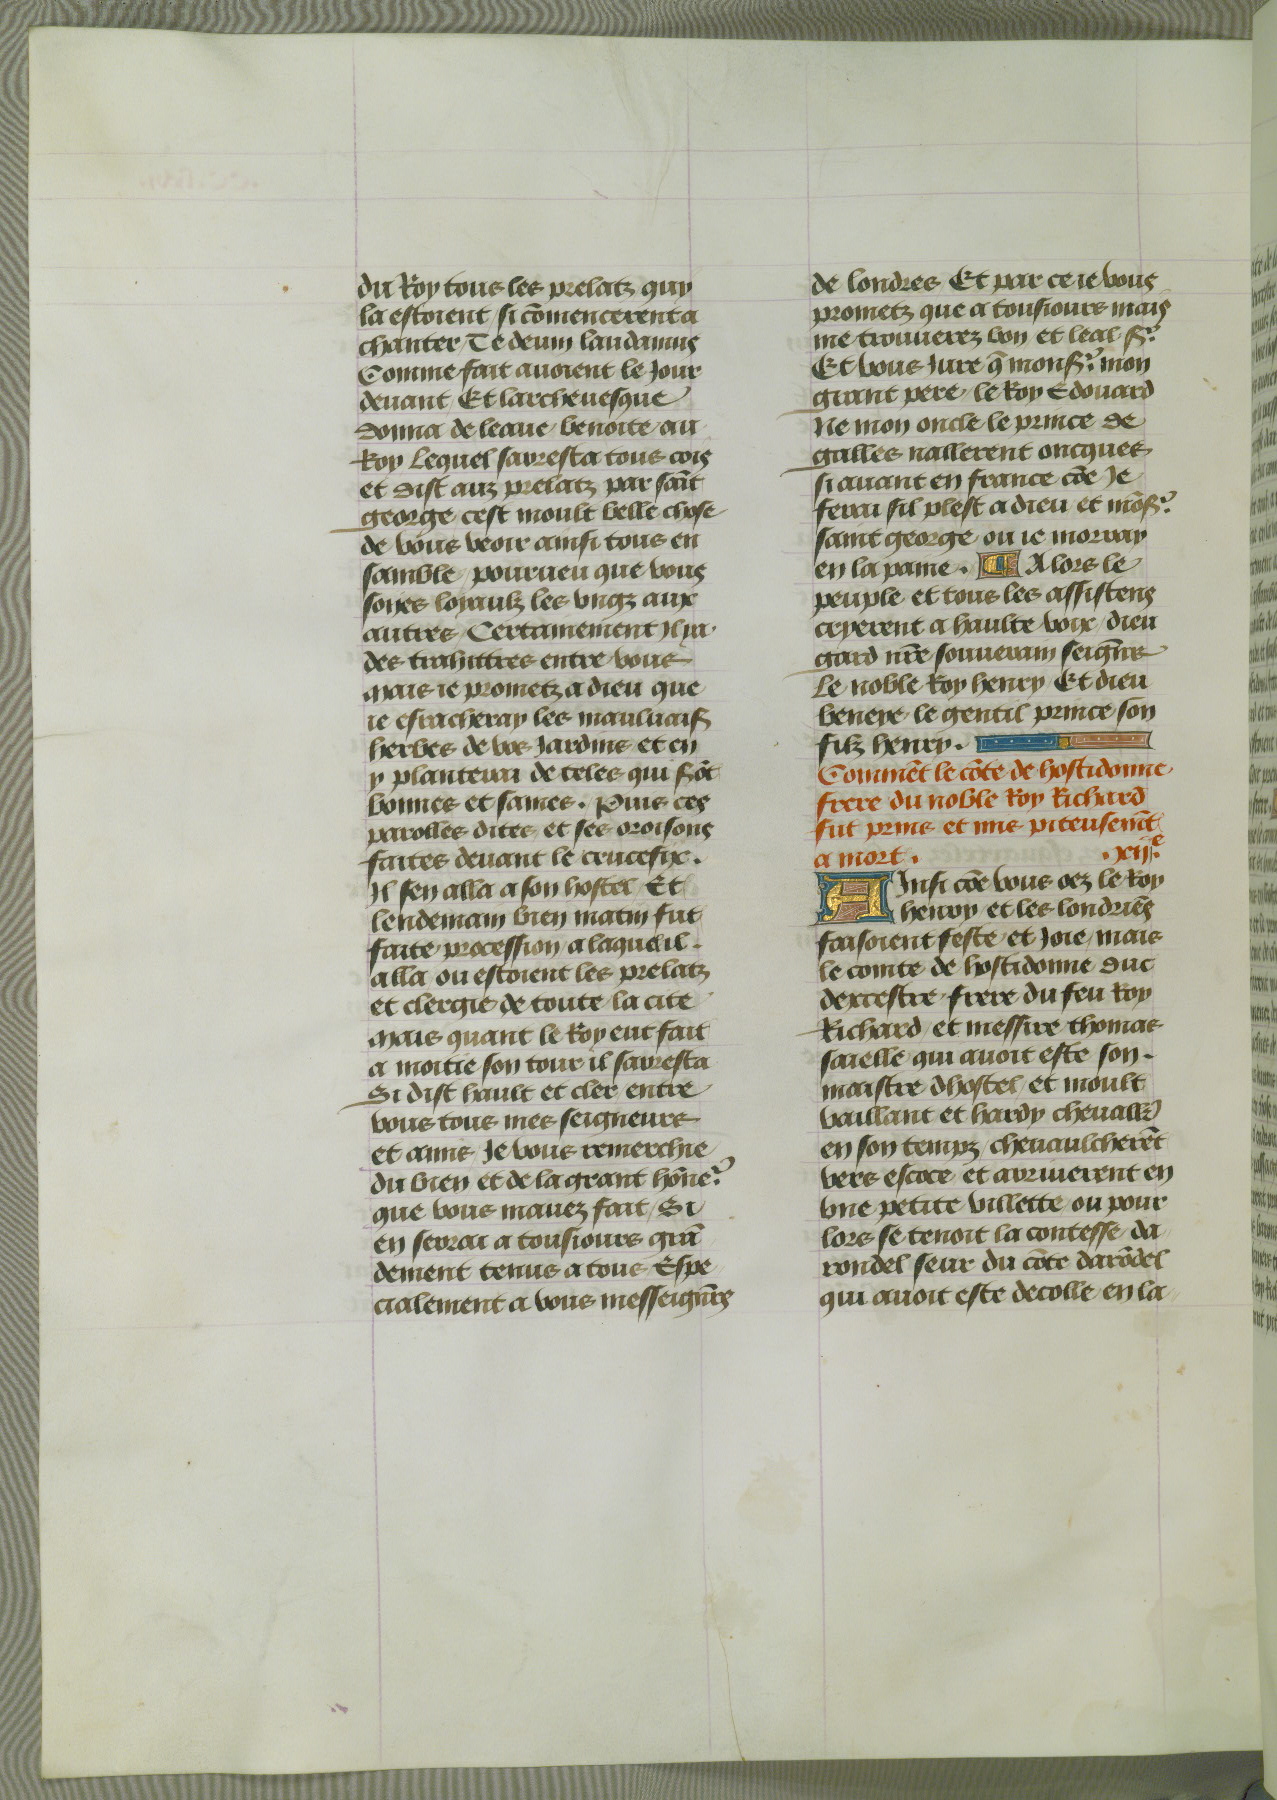 du Roy tous les prelatz quy
la estoient / si cōmencerent a
chanter / Te deum laudamus
Comme fait auoient le Jour
deuant / Et larcheuesque
donna de leaue benoite au
Roy Lequel sarresta tous cois
et dist auz prelatz par sāit
george cest moult belle chose
de vous veoir ainsi tous en
samble / pourueu que vous
soyes loyaulz les vngz aux
autres / Certainement Jl ya
des trahittres entre vous
mais ie prometz a dieu que
ie esracheray les mauluaiss
herbes de vos Jardins et en
y planterai de celes qui serōt
bonnes et saines . Puis ces
parolles dites et ses oroisons
faites deuant le crucefix .
Jl sen alla a son hostel / Et
lendemain bien matin fut
faite procession a laquelil
alla ou estoient les prelatz
et clergie de toute la cite
mais quant le Roy eut fait
a moitie son tour il sarresta
Si dist hault et cler / entre
vous tous mes seigneurs
et amis / Je vous remerchie
du bien et de la grant hōne?
que vous mauez fait / Si
en serai a tousiours grā
dement tenus a tous / Espe
cialement a vous messeigūrs
de londres Et par ce ie vous
prometz que a tousiours mais
me trouuerez bon et leal sr
Et vous Jure q̄ monsr mon
grant pere / le Roy Edouard
Ne mon oncle le prince de
galles nallerent oncques
si auant en france cōe Je
ferai sil plest a dieu et mōsr
saint george / ou ie morray
en la paine . Alors le
peuple et tous les assistens
cryerent a haulte voix / dieu
gard nr̄e souuerain seignūr
Le noble Roy henry / Et dieu
beneye le gentil prince son
filz henry .
Commēt le cōte de hostidonne
frere du noble Roy Richard
fut prins et mis piteusemēt
a mort . . xiije
Ainsi cōe vous oez le Roy
henry et les londriēs
faisoient feste et Joie / mais
le comte de hostidonne duc
dexcestre frere du feu Roy
Richard / et messire thomas
saielle qui auoit este son
maistre dhostel / et moult
vaillant et hardy cheuallr̄
en son tempz / cheuaulcherēt
vers escoce et arriuerent en
vne petite villette ou pour
lors se tenoit la contesse da
rondel seur du cōte darōdel
qui auoit este decolle en la